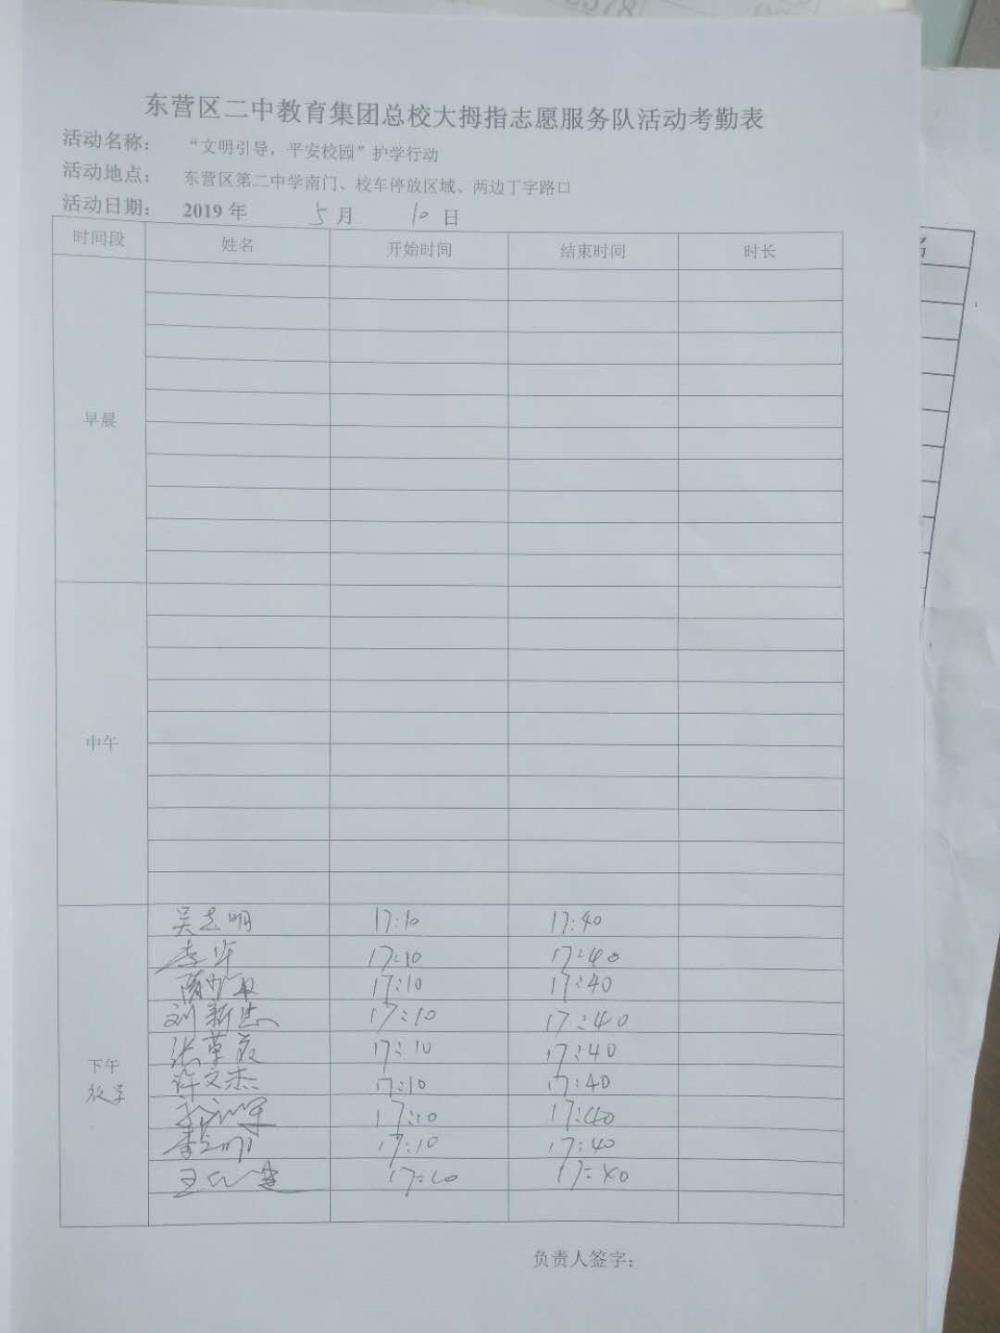 东营区二中教育集团总校大拇指志愿服务队活动考勤表
活动名称： “文明引导，平安校园”护学行动
活动地点： 东营区第二中学南门、校车停放区域、两边丁字路口
活动日期： 2019 年 5 月 10 日
时间段 姓名 开始时间 结束时间 时长
早晨
中午
下午
放学
吴志明 17:10 17:40
李华 17:10 17:40
17:10 17:40
刘新忠 17:10 17:40
张 17:10 17:40
许文杰 17:10 17:40
17:10 17:40
李 17:10 17:40
王 17:10 17:40
负责人签字：